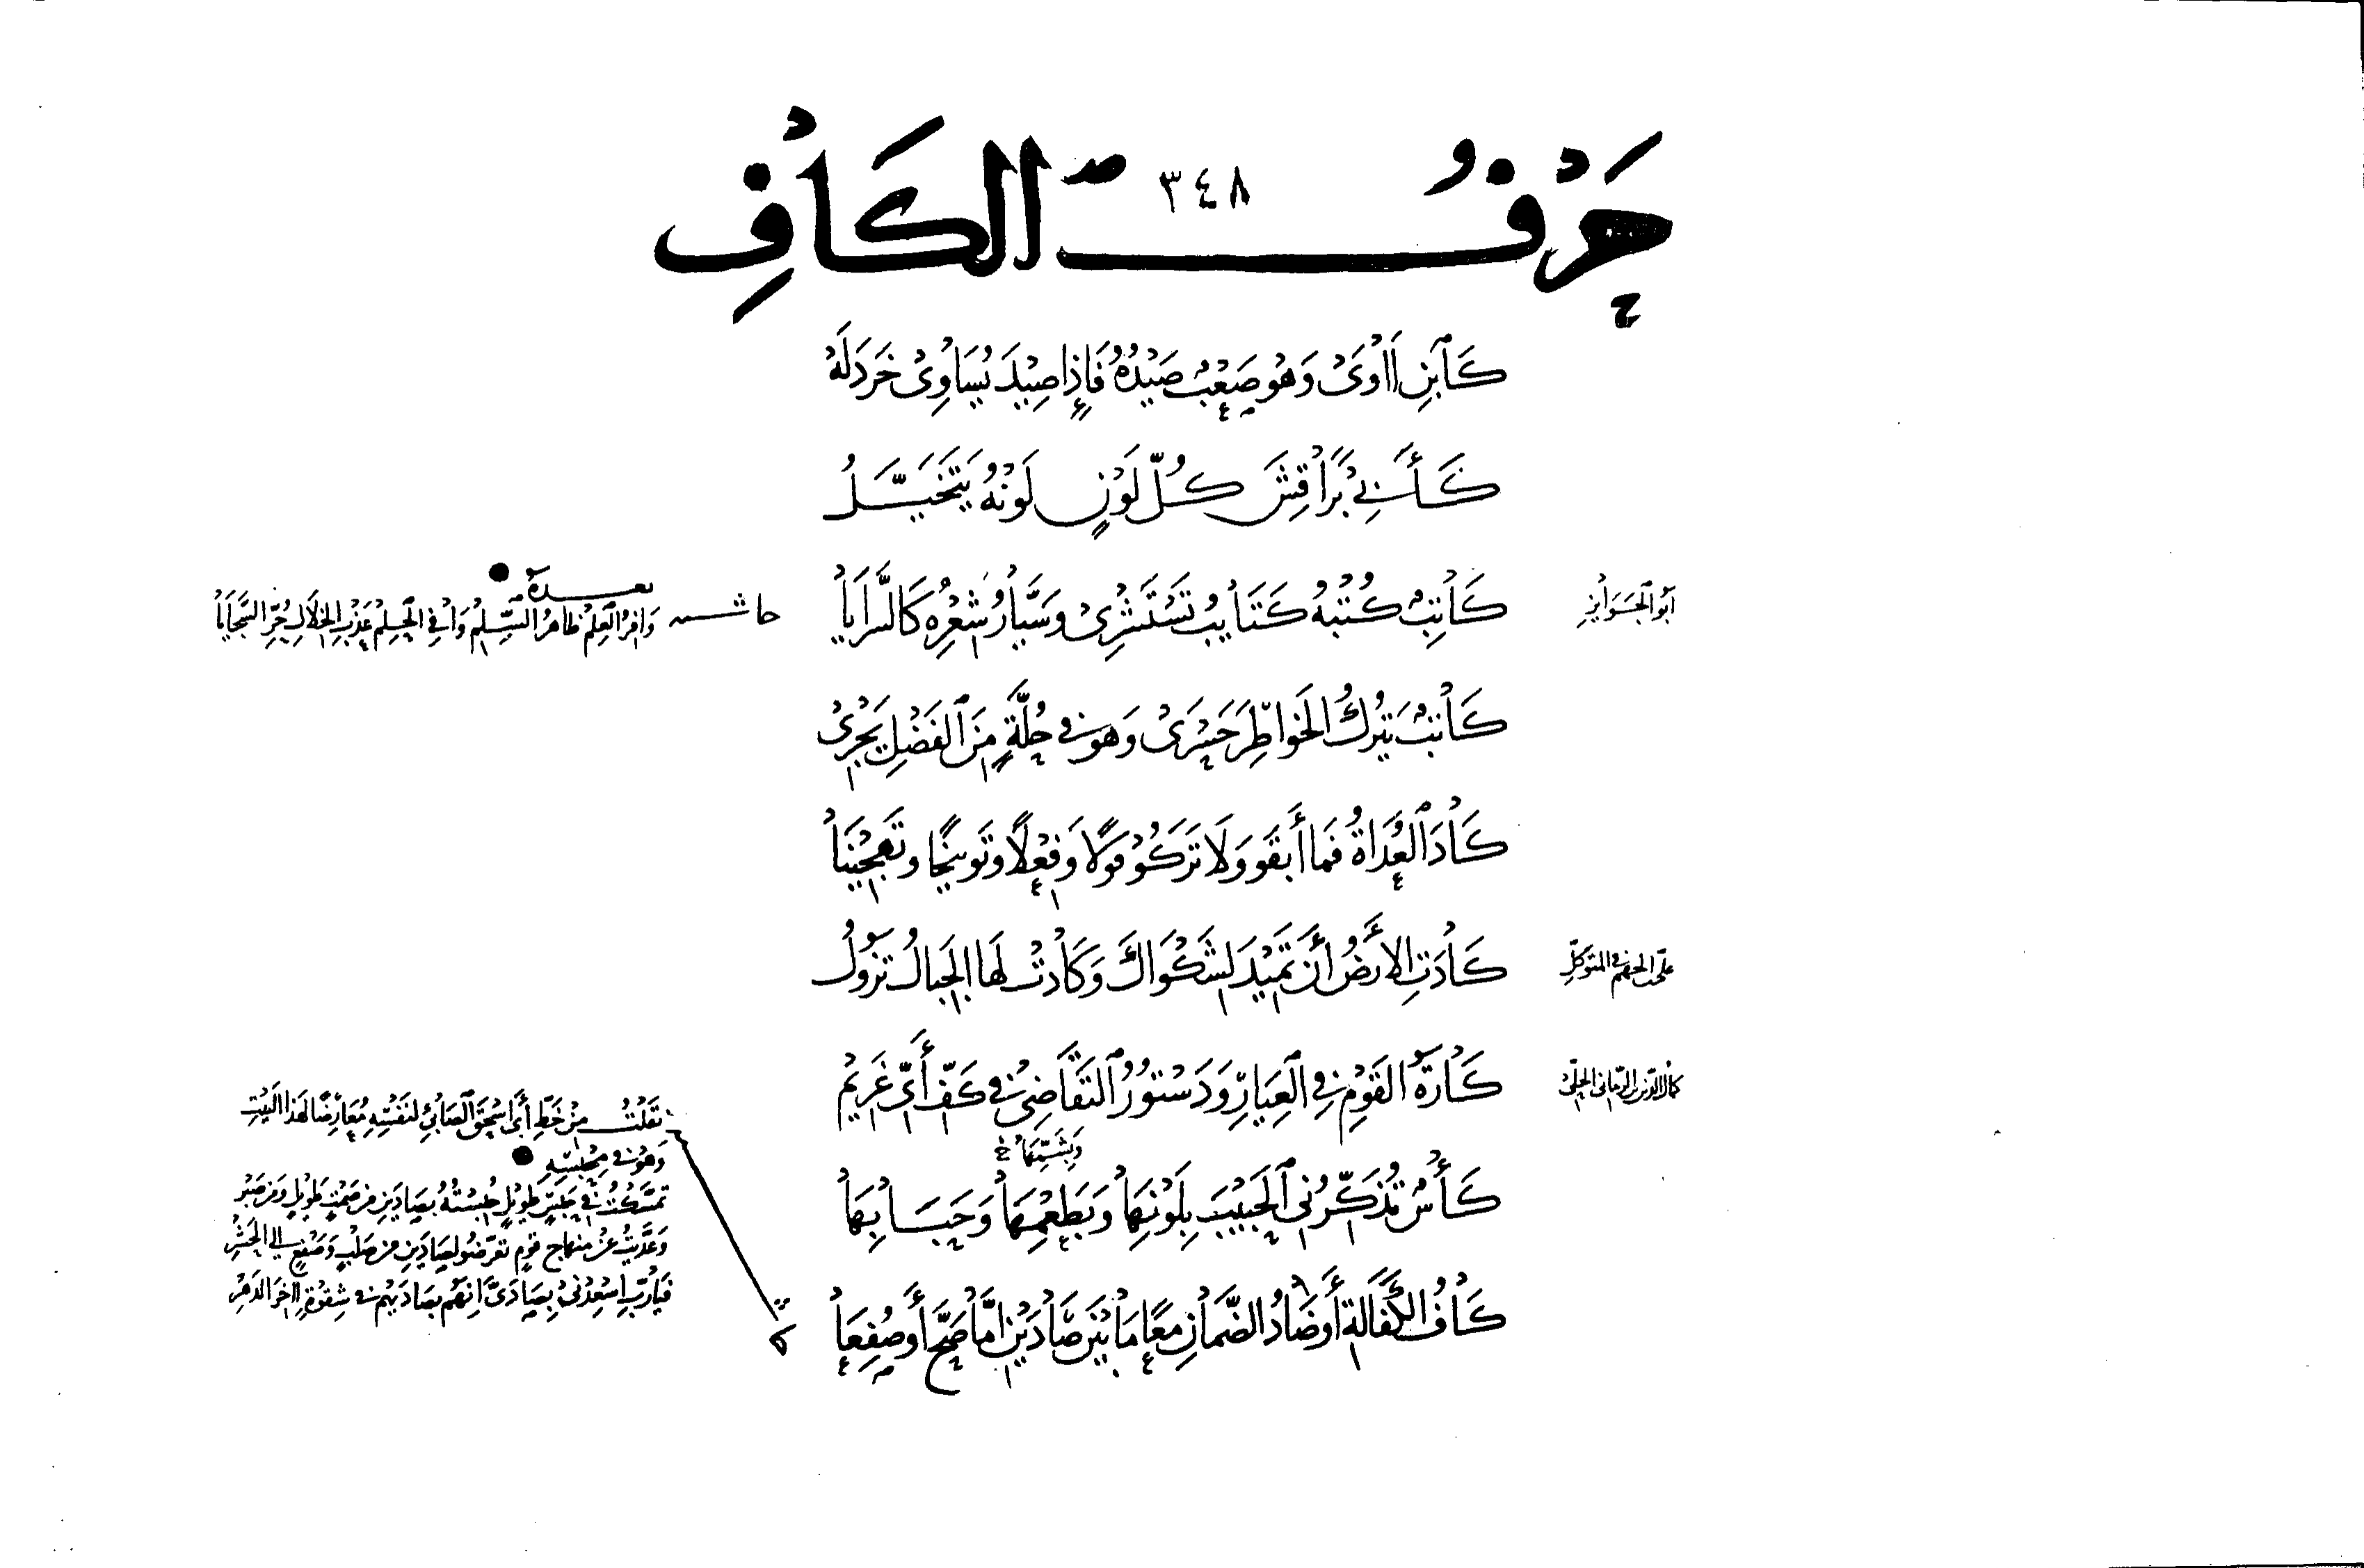 حَرْفُ الكَافِ
٣٤٨
كَابنِ اٰوَى وَهُو صَعْبٌ صَيْدُهُ فَإِذَا صِيْدَ يُسَاوِي خَرْدَلَهْ
كَأَبِي بَرَاقِشَ كُلّ لَوْنٍ لَوْنُهُ يَتَخَيَّلُ
أبو الجوايز
كَاتِبٌ كُتْبهُ كَتَايبُ تَسْتَشْرِي وَسَيَّارُ شِعْرِهِ كَالسَّرَايَا
حاشية
بعده
وَافِرُ العِلمِ ظاهرُ السّلمِ وَافي الحِلمِ عَذْبُ الخلَالِ حُرّ السَّجَايَا
كَاتبٌ يَتركُ الخَواطِرَ حَسْرَى وَهو في حُلَّةٍ مِنَ الفَضْلِ يَجْرِي
كَادَ العُدَاةُ فَما أَبقَو وَلَا تَرَكُوْ قَوْلًا وَفِعْلًا وَتَوبيخًا وتَهْجِيْنَا
علي الجهم في المتوكل
كَادَتِ الأَرضُ أَن تَمِيْدَ لِشَكْوَاكَ وَكَادَتْ لهَا الجِبَالُ تَزُوْلُ
كَارَةُ القَوْمِ في العِيَارِ وَدَسْتُورُ التقَاضِي في كَفِّ أَيِّ غَرِيْمِ
وَبِشَمِّهَا خ
كَأْسٌ تُذَكِّرُنِي الحَبِيْبَ بِلَوْنِهَا وَبَطَعْمِهَا وَحَبَابِهَا
كَافُ الكَفَالَةِ أَو ضَادُ الضَّمَانِ مَعًا مَا بَيْنَ صَادَيْنِ امَّا صَحَّ أَو صُفِعَا
نَقَلْتُ مِنْ خَطِّ أَبي اسْحٰقَ الصَابئ لنَفْسِهِ مُعَارِضًا لهَذا البَيْتِ
وَهْوَ في مَحْبَسِهِ
تمسَّكْتُ في حَبْسٍ طَويْلٍ حُبِسْتُهُ بصَادَينِ من صَمْتٍ طَويلٍ وَمن صَبْر
وَعَدَّيتُ عنْ منهاج قوم تعرّضُو لصَادَينِ من صَلْبٍ وَصَفْعٍ إلى الحَشْرِ
فيَا رُبّ اسْعِدْني بصَادَيَّ انهُم بصَادَيهُم في شِقْوَةٍ اٰخرَ الدَّهْرِ